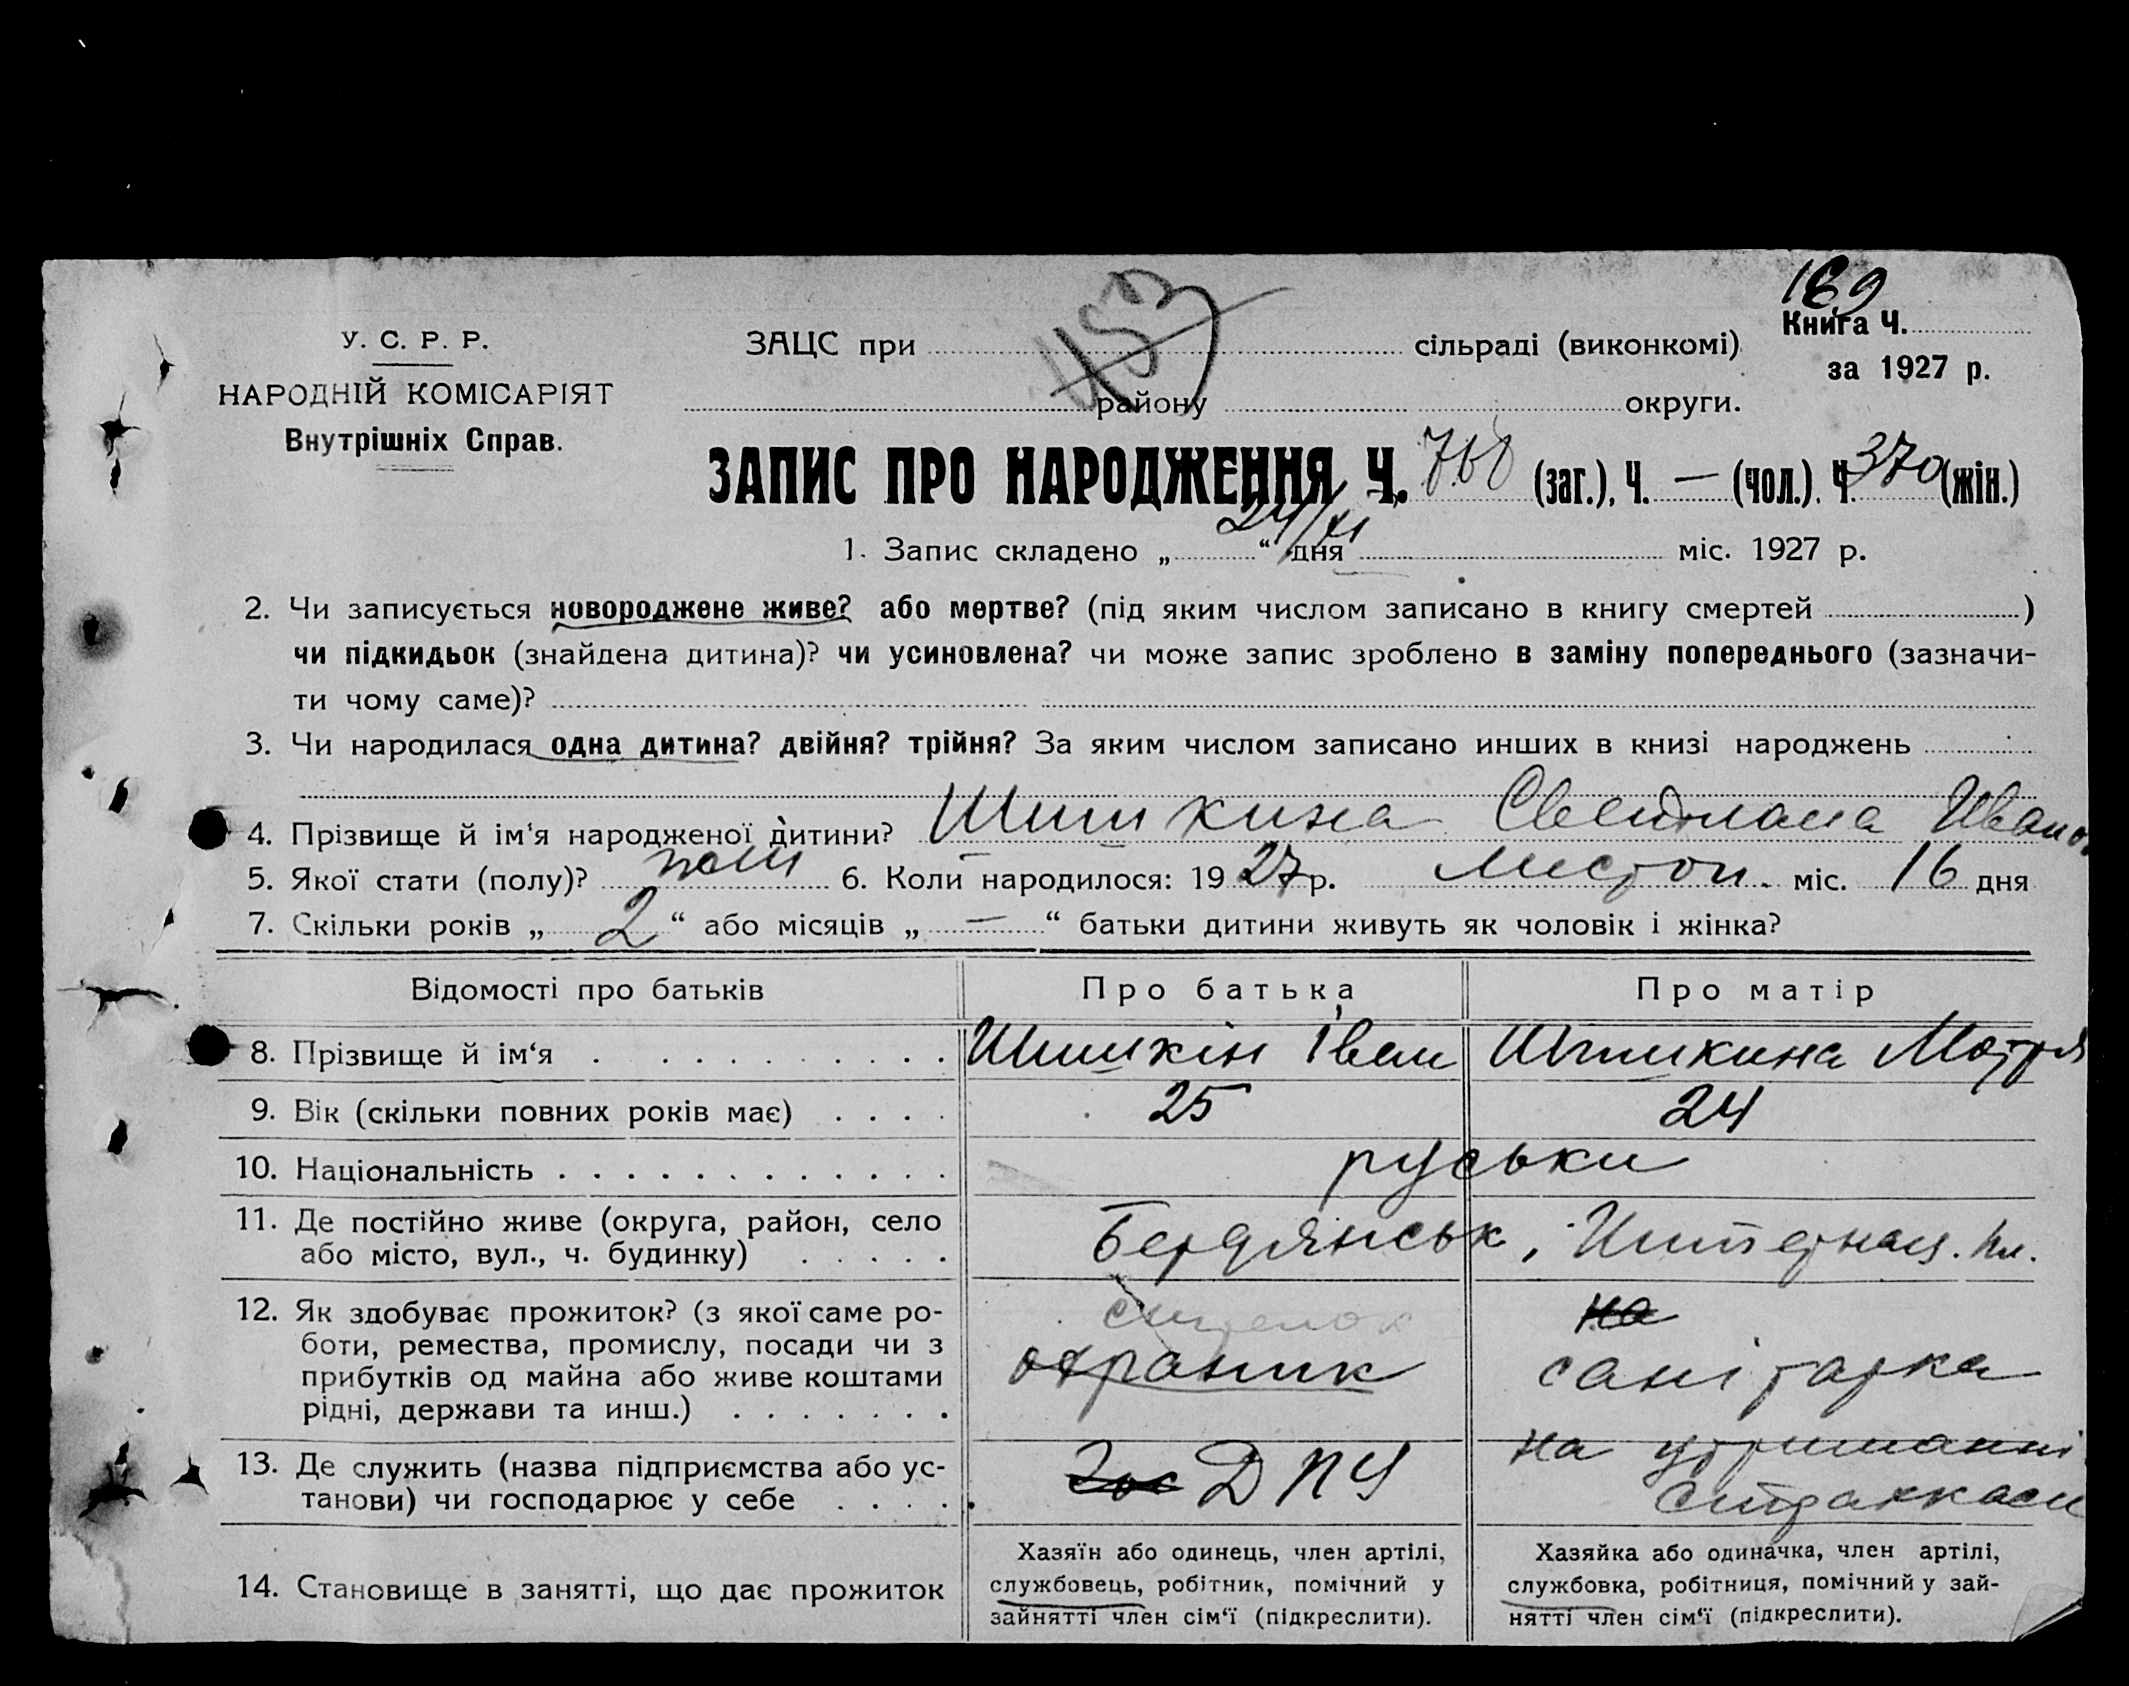 169
453
У. С. Р. Р.
НАРОДНІЙ КОМІСАРІЯТ
Внутрішніх Справ.
ЗАЦС при сільраді (виконкомі)
району округи.
Книга Ч.
за 1927 р.
ЗАПИС ПРО НАРОДЖЕННЯ Ч. 768 (заг.), Ч. — (чол.). Ч. 370 (жін.)
1. Запис складено „ 24/XI “ дня міс. 1927 р.
2. Чи записується новороджене живе? або мертве? (під яким числом записано в книгу смертей )
чи підкидьок (знайдена дитина)? чи усиновлена? чи може запис зроблено в заміну попереднього (зазначи-
ти чому саме)?
3. Чи народилася одна дитина? двійня? трійня? За яким числом записано инших в книзі народжень
4. Прізвище й ім‘я народженої дитини? Шишкина Светлана Ивано
5. Якої стати (полу)? жін 6. Коли народилося: 19 27 р. Листоп. міс. 16 дня
7. Скільки років „ 2 “ або місяців „ — “ батьки дитини живуть як чоловік і жінка?
Відомості про батьків Про батька Про матір
8. Прізвище й ім‘я Шишкін Іван Шишкина Мотря
9. Вік (скільки повних років має) 25 24
10. Національність руськи
11. Де постійно живе (округа, район, село
або місто, вул., ч. будинку) Бердянськ, Интернац. пл.
12. Як здобуває прожиток? (з якої саме ро-
боти, ремества, промислу, посади чи з
прибутків од майна або живе коштами
рідні, держави та инш.)
охраник
на
санітарка
13. Де служить (назва підприємства або ус-
танови) чи господарює у себе
ДПУ
на утриманні
Страхкаси
14. Становище в занятті, що дає прожиток
Хазяїн або одинець, член артілі,
службовець, робітник, помічний у
зайнятті член сім‘ї (підкреслити).
Хазяйка або одиначка, член артілі,
службовка, робітниця, помічний у зай-
нятті член сім‘ї (підкреслити).